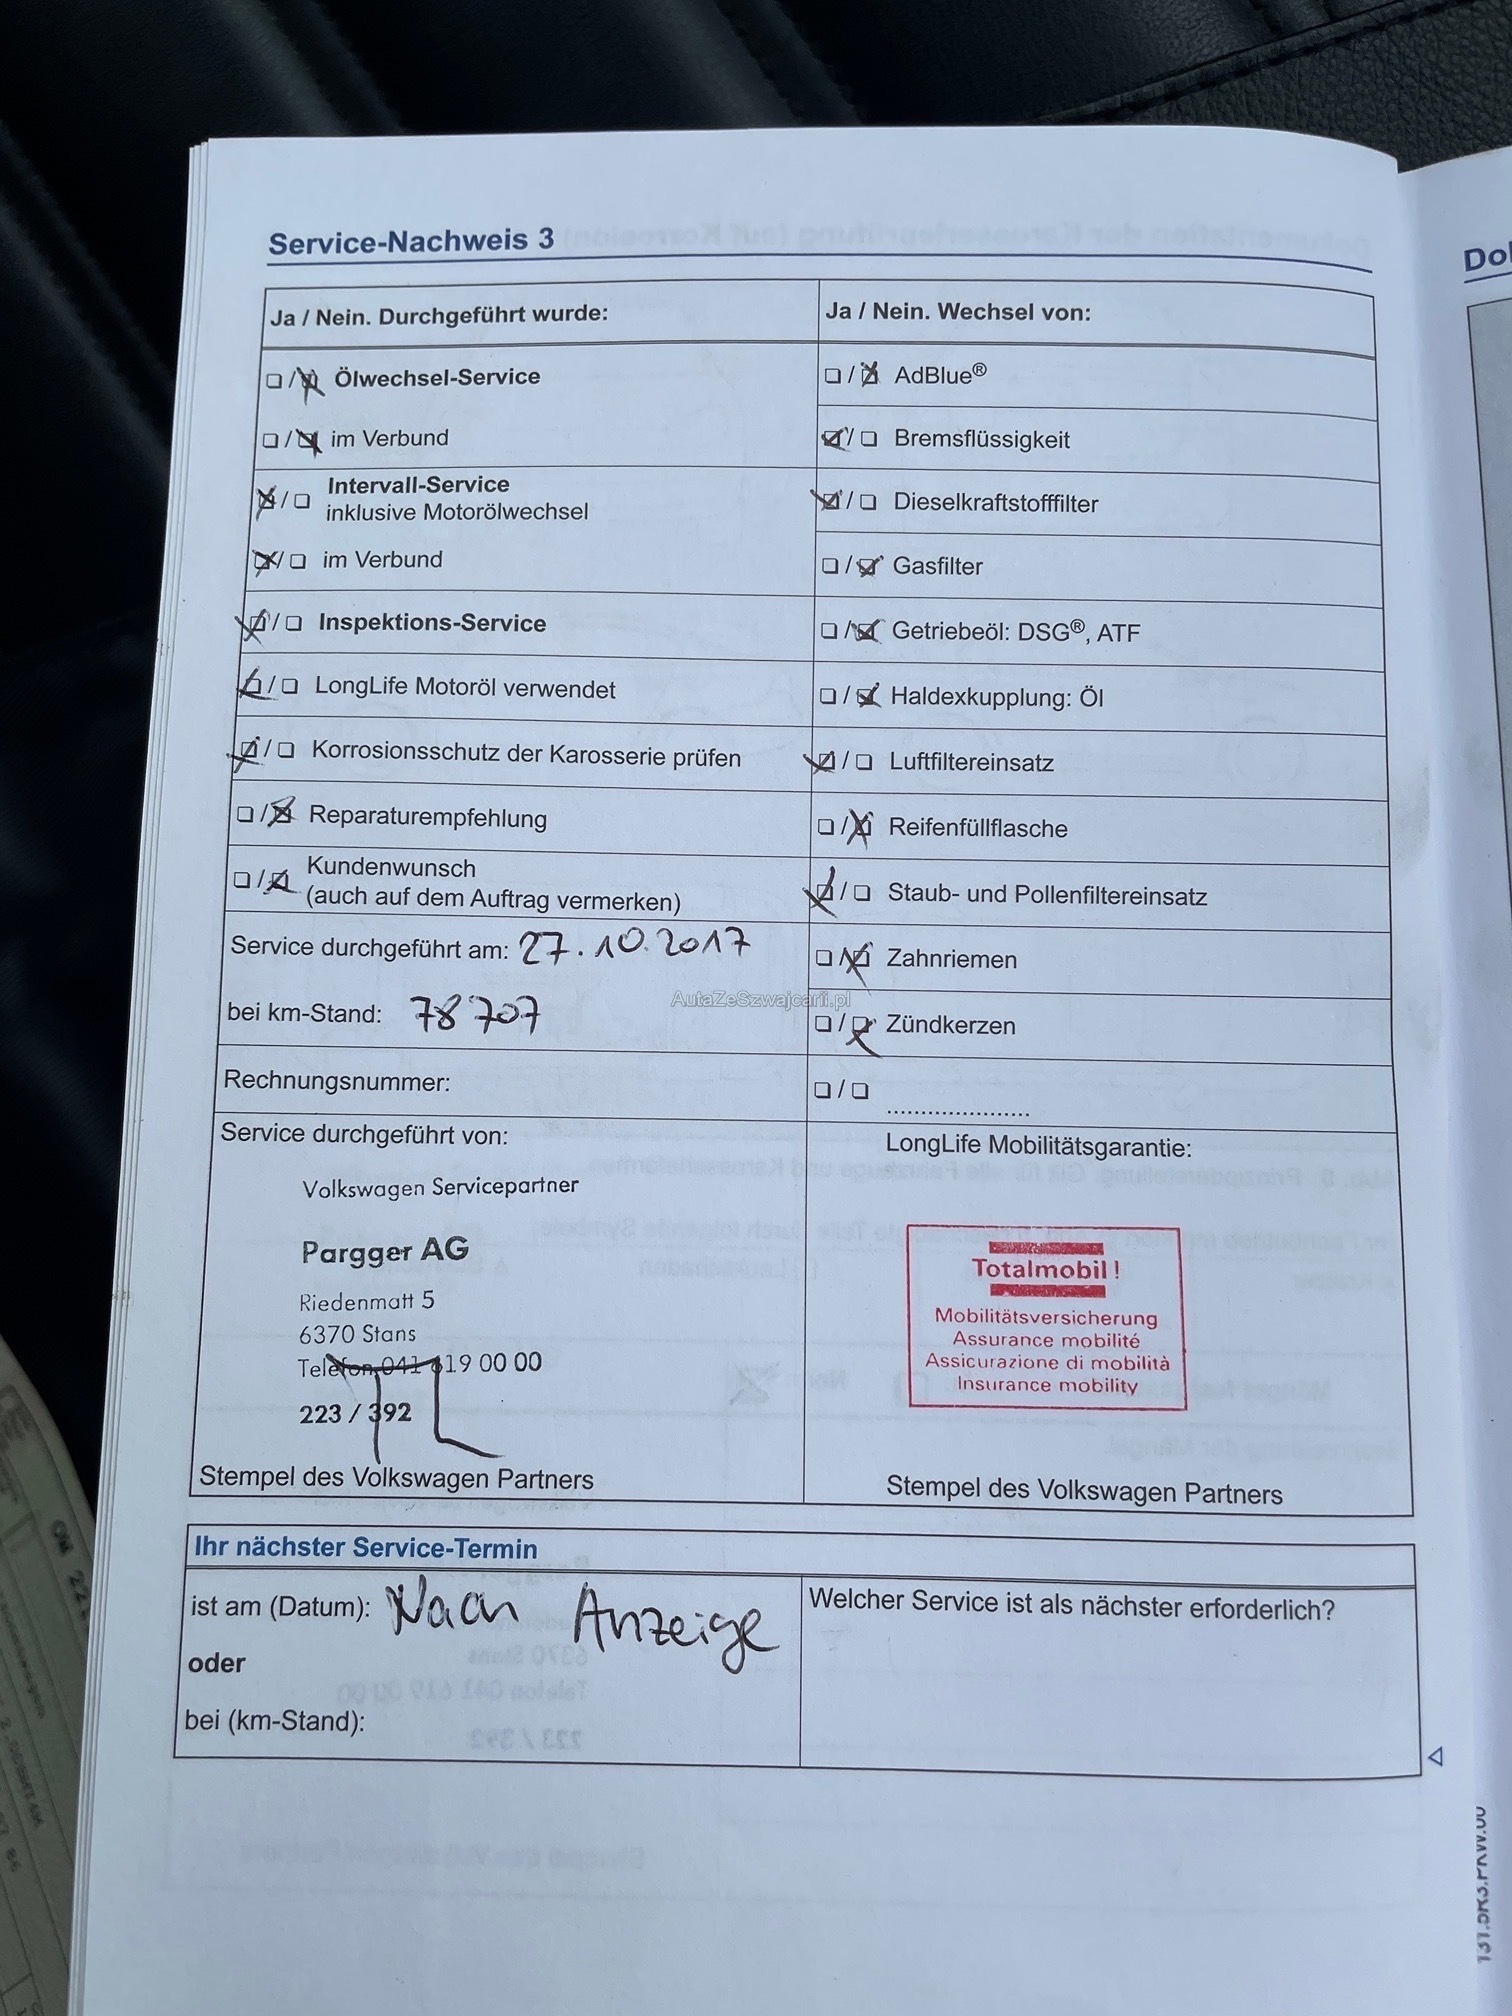 Service-Nachweis 3
Do
Ja / Nein. Durchgeführt wurde:
☐ / ☒ Ölwechsel-Service
☐ / ☒ im Verbund
☒ / ☐ Intervall-Service
inklusive Motorölwechsel
☒ / ☐ im Verbund
☒ / ☐ Inspektions-Service
☒ / ☐ LongLife Motoröl verwendet
☒ / ☐ Korrosionsschutz der Karosserie prüfen
☐ / ☒ Reparaturempfehlung
☐ / ☒ Kundenwunsch
(auch auf dem Auftrag vermerken)
Service durchgeführt am: 27.10.2017
bei km-Stand: 78707
Rechnungsnummer:
Ja / Nein. Wechsel von:
☐ / ☒ AdBlue®
☒ / ☐ Bremsflüssigkeit
☒ / ☐ Dieselkraftstofffilter
☐ / ☒ Gasfilter
☐ / ☒ Getriebeöl: DSG®, ATF
☐ / ☒ Haldexkupplung: Öl
☒ / ☐ Luftfiltereinsatz
☐ / ☒ Reifenfüllflasche
☒ / ☐ Staub- und Pollenfiltereinsatz
☐ / ☒ Zahnriemen
☐ / ☒ Zündkerzen
☐ / ☐ .....................
AutaZeSzwajcarii.pl
Service durchgeführt von:
Volkswagen Servicepartner
Pargger AG
Riedenmatt 5
6370 Stans
Telefon 041 619 00 00
223 / 392
Stempel des Volkswagen Partners
LongLife Mobilitätsgarantie:
Totalmobil!
Mobilitätsversicherung
Assurance mobilité
Assicurazione di mobilità
Insurance mobility
Stempel des Volkswagen Partners
Ihr nächster Service-Termin
ist am (Datum): Nach Anzeige
oder
bei (km-Stand):
Welcher Service ist als nächster erforderlich?